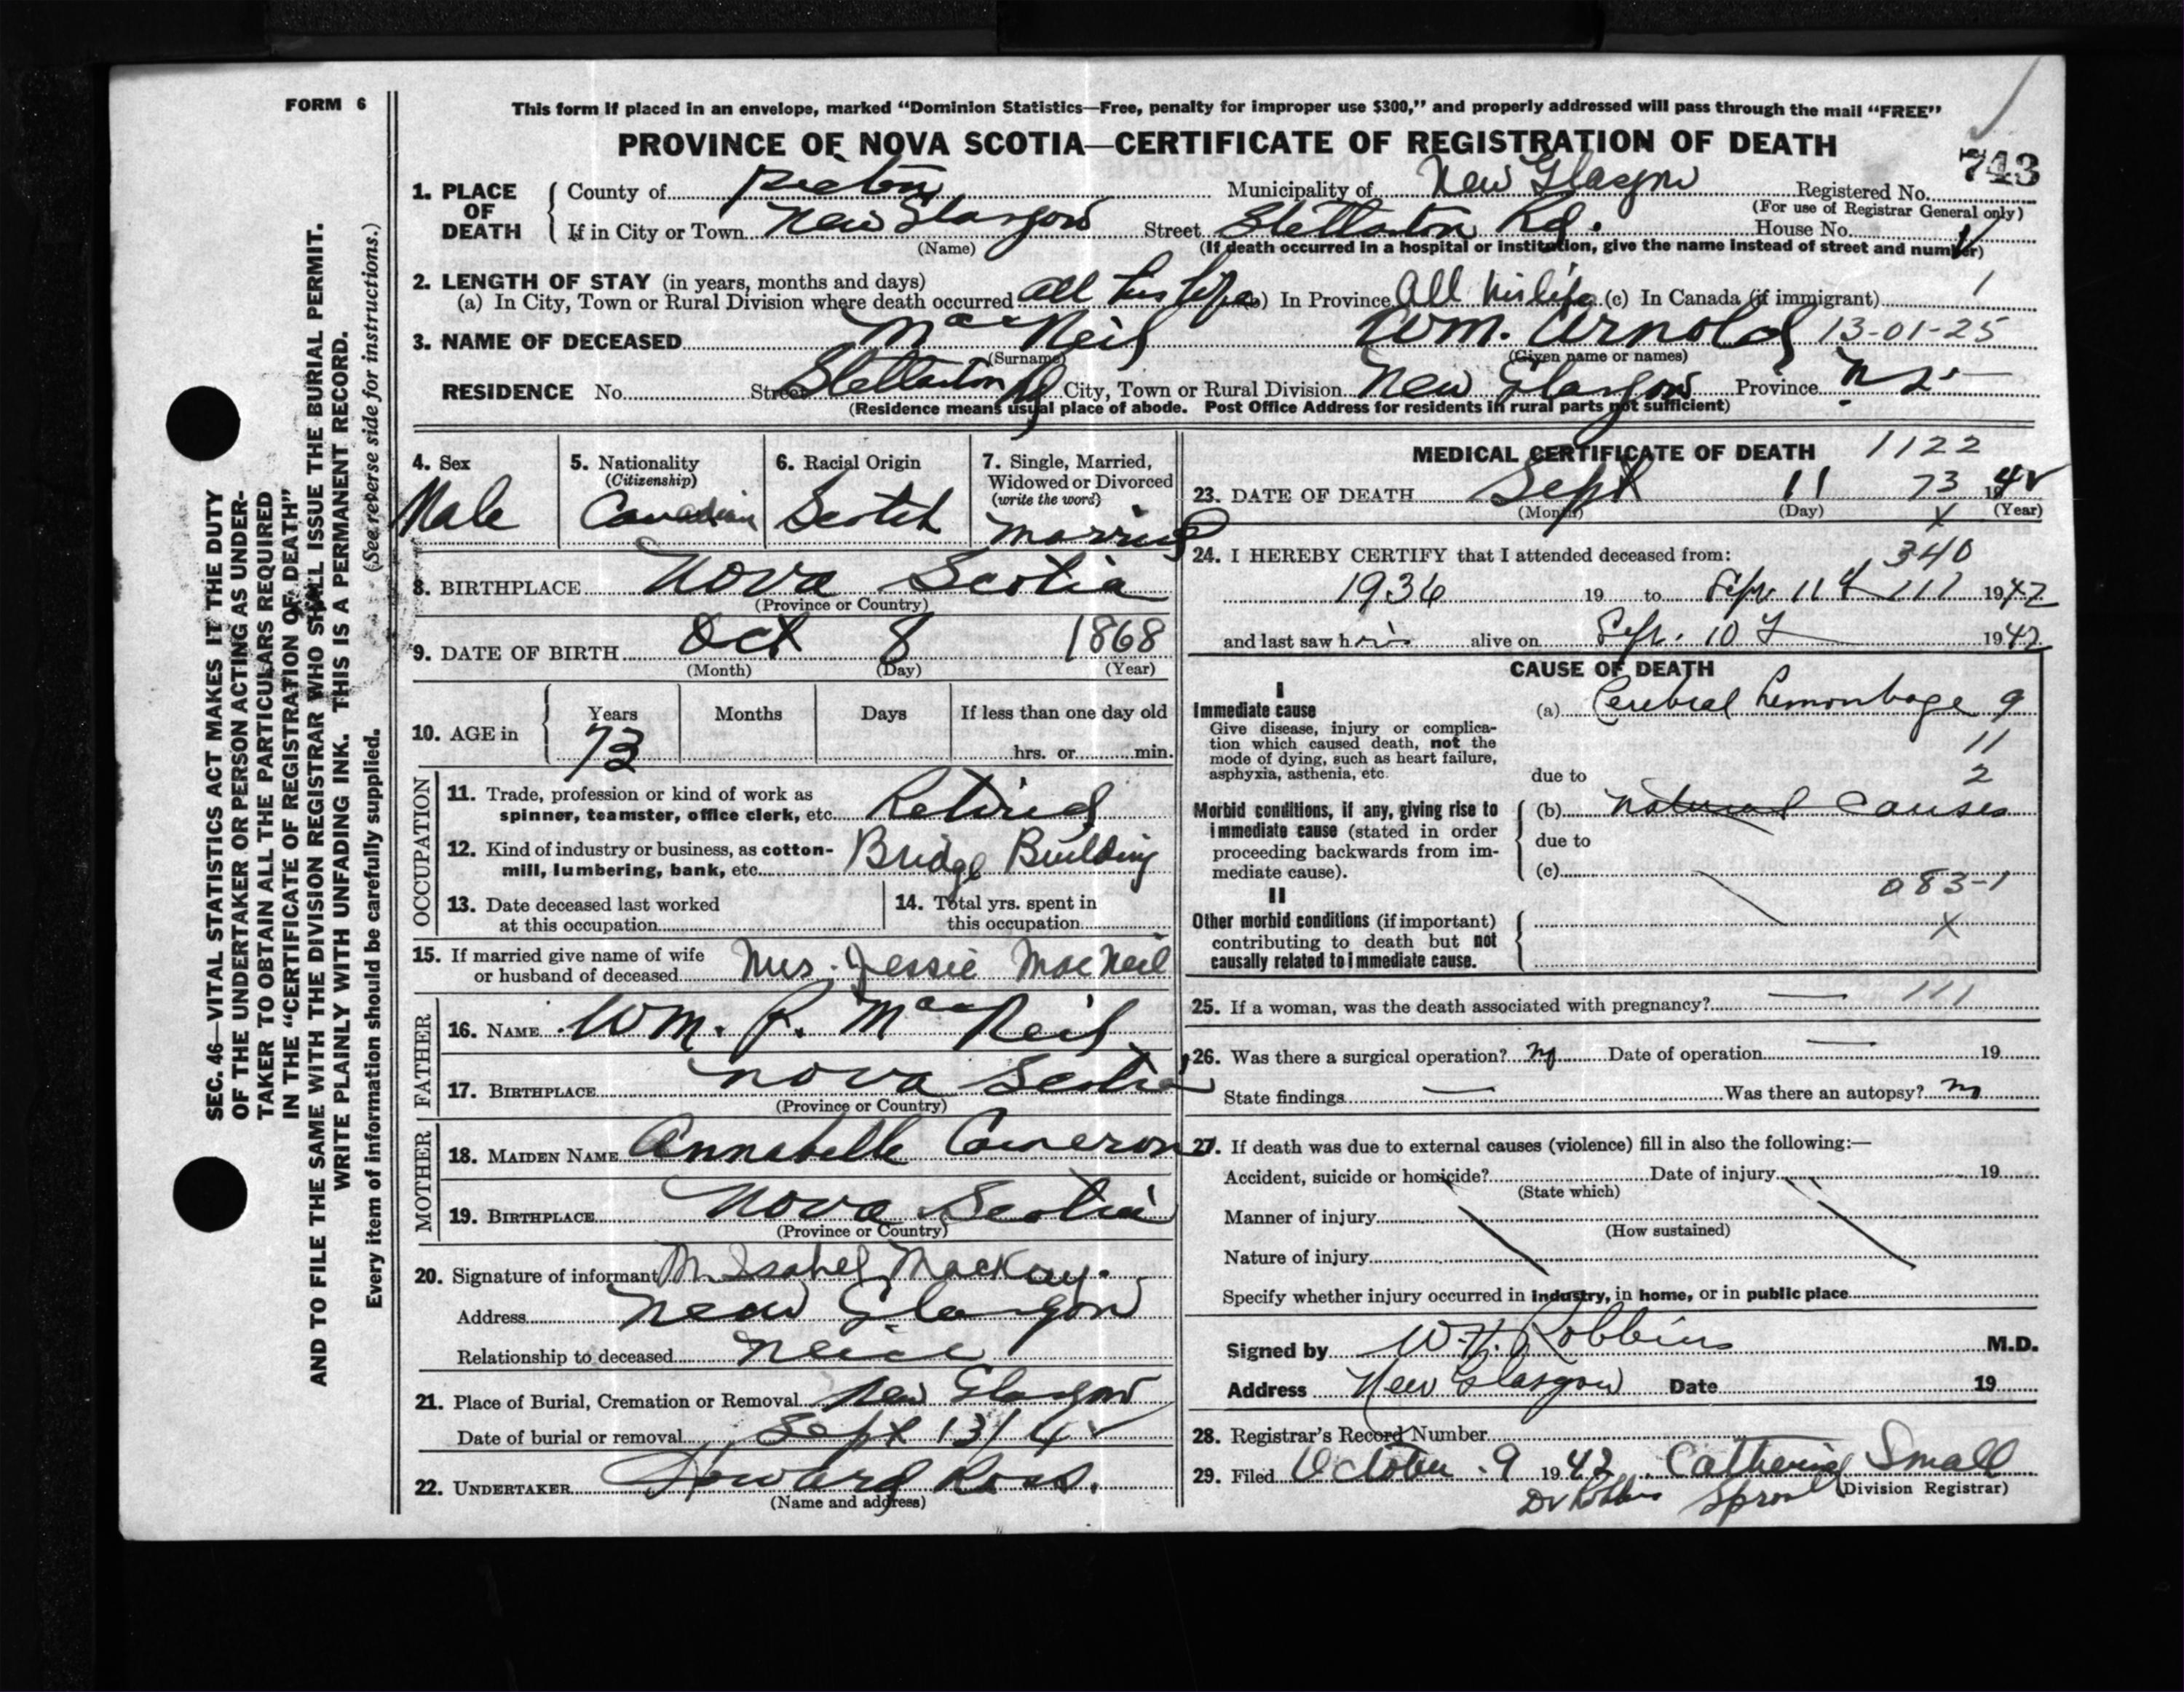 FORM 6
This form if placed in an envelope, marked “Dominion Statistics—Free, penalty for improper use $300,” and properly addressed will pass through the mail “FREE”
PROVINCE OF NOVA SCOTIA—CERTIFICATE OF REGISTRATION OF DEATH
743
1. PLACE OF DEATH County of Pictou Municipality of New Glasgow Registered No.
(For use of Registrar General only)
If in City or Town New Glasgow Street Stellarton Rd. House No.
(Name) (If death occurred in a hospital or institution, give the name instead of street and number)
2. LENGTH OF STAY (in years, months and days)
(a) In City, Town or Rural Division where death occurred all his life (b) In Province All his life (c) In Canada (if immigrant) 1
3. NAME OF DECEASED MacNeil Wm. Arnold 13-01-25
(Surname) (Given name or names)
RESIDENCE No. Street Stellarton Rd City, Town or Rural Division New Glasgow Province N.S.
(Residence means usual place of abode. Post Office Address for residents in rural parts not sufficient)
4. Sex Male
5. Nationality (Citizenship) Canadian
6. Racial Origin Scotch
7. Single, Married, Widowed or Divorced (write the word) Married
8. BIRTHPLACE Nova Scotia
(Province or Country)
9. DATE OF BIRTH Oct 8 1868
(Month) (Day) (Year)
10. AGE in Years Months Days If less than one day old
73 hrs. or min.
OCCUPATION
11. Trade, profession or kind of work as spinner, teamster, office clerk, etc. Retired
12. Kind of industry or business, as cotton-mill, lumbering, bank, etc. Bridge Building
13. Date deceased last worked at this occupation
14. Total yrs. spent in this occupation
15. If married give name of wife or husband of deceased Mrs. Jessie MacNeil
FATHER
16. NAME Wm. R. MacNeil
17. BIRTHPLACE Nova Scotia
(Province or Country)
MOTHER
18. MAIDEN NAME Annabelle Cameron
19. BIRTHPLACE Nova Scotia
(Province or Country)
20. Signature of informant M. Isabel MacKay.
Address New Glasgow
Relationship to deceased Neice
21. Place of Burial, Cremation or Removal New Glasgow
Date of burial or removal Sept 13/42
22. UNDERTAKER Howard Ross.
(Name and address)
MEDICAL CERTIFICATE OF DEATH 1122
23. DATE OF DEATH Sept 11 73 1942
(Month) (Day) (Year)
24. I HEREBY CERTIFY that I attended deceased from: 340
1936 19 to Sept. 11 111 1942
and last saw him alive on Sept. 10 1942
CAUSE OF DEATH
I
Immediate cause
Give disease, injury or complication which caused death, not the mode of dying, such as heart failure, asphyxia, asthenia, etc.
(a) Cerebral hemorrhage 9
11
due to 2
Morbid conditions, if any, giving rise to immediate cause (stated in order proceeding backwards from immediate cause).
(b) Natural Causes
due to
(c)
083-1
II
Other morbid conditions (if important) contributing to death but not causally related to immediate cause.
X
25. If a woman, was the death associated with pregnancy? — 111
26. Was there a surgical operation? no Date of operation — 19
State findings — Was there an autopsy? no
27. If death was due to external causes (violence) fill in also the following:—
Accident, suicide or homicide? Date of injury 19
(State which)
Manner of injury
(How sustained)
Nature of injury
Specify whether injury occurred in industry, in home, or in public place
Signed by W. H. Robbins M.D.
Address New Glasgow Date 19
28. Registrar's Record Number
29. Filed October 9 1942. Catherine Small
Dr Robbins Sproull (Division Registrar)
SEC. 46—VITAL STATISTICS ACT MAKES IT THE DUTY
OF THE UNDERTAKER OR PERSON ACTING AS UNDER-
TAKER TO OBTAIN ALL THE PARTICULARS REQUIRED
IN THE “CERTIFICATE OF REGISTRATION OF DEATH”
AND TO FILE THE SAME WITH THE DIVISION REGISTRAR WHO SHALL ISSUE THE BURIAL PERMIT.
WRITE PLAINLY WITH UNFADING INK. THIS IS A PERMANENT RECORD.
Every item of information should be carefully supplied. (See reverse side for instructions.)